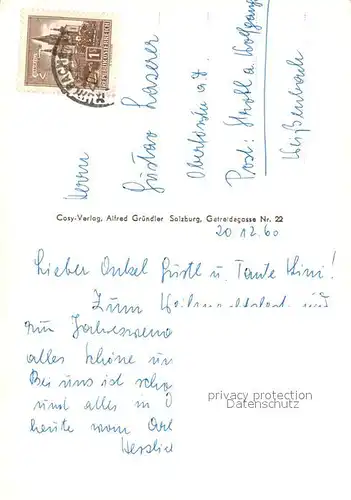 Herrn
Gustav Laserer
Oberförster a. D.
Post: Strobl a Wolfgang
Weißenbach
Cosy-Verlag, Alfred Gründler Salzburg, Getreidegasse Nr. 22
20 12. 60
Lieber Onkel Gustl u. Tante Mini!
Zum Weihnachtsfest und
zum Jahreswend
alles Schöne un
Bei uns ist scho
und alles in
heute vom
Herzlich
privacy protection
Datenschutz